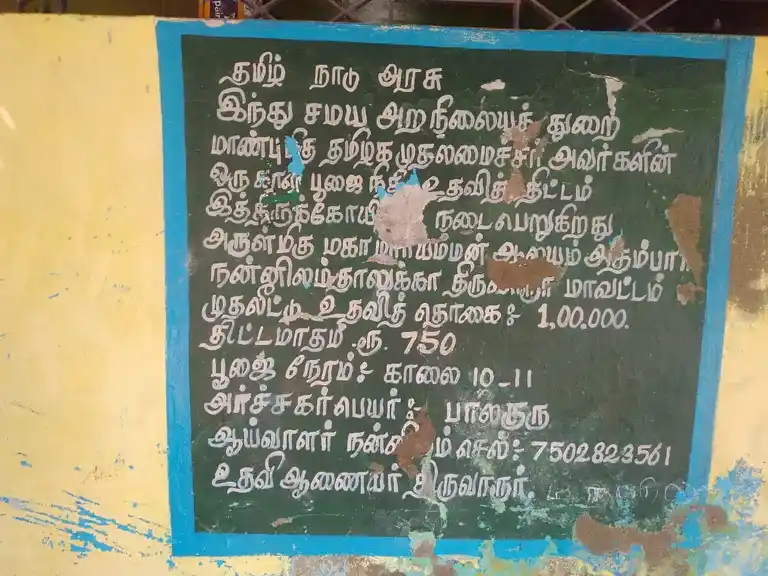 தமிழ் நாடு அரசு
இந்து சமய அறநிலையத் துறை
தமிழக முதலமைச்சர் அவர்களின்
ஒரு கால பூஜை நிதி உதவித் திட்டம்
நடைபெறுகிறது
அருள்மிகு மகா மாரியம்மன் ஆலயம்
நன்னிலம்தாலுக்கா திருவாரூர் மாவட்டம்
முதலீட்டு உதவித் தொகை :- 1,00.000.
திட்டமாதம் ரூ. 750
பூஜை நேரம் :- காலை 10-11
அர்ச்சகர்பெயர் :- பாலகுரு
ஆய்வாளர் செல் :- 7502823561
உதவி ஆணையர் திருவாரூர்.